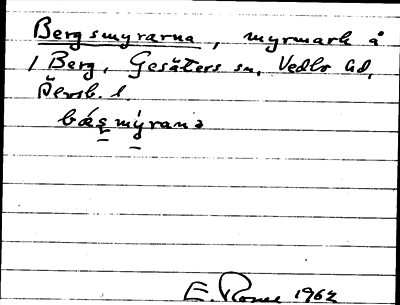 Bergsmyrarna, myrmark å
1 Berg, Gesäters sn, Vedbo hd,
Älvsb. l.
bæs̠mýranə
E. 1962